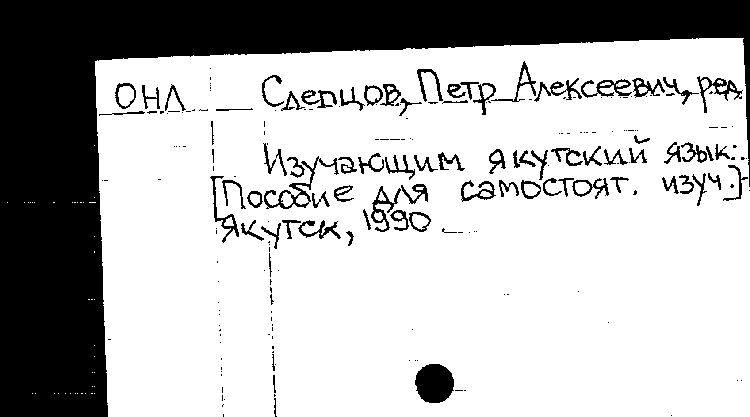 ОНЛ Слепцов, Петр Алексеевич, ред.
Изучающим якутский язык:
[Пособие для самостоят. изуч.]
Якутск, 1990